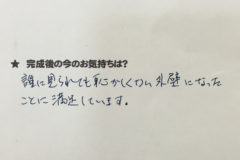 ★ 完成後の今のお気持ちは?
誰に見られても恥かしくない外壁になった
ことに満足しています。